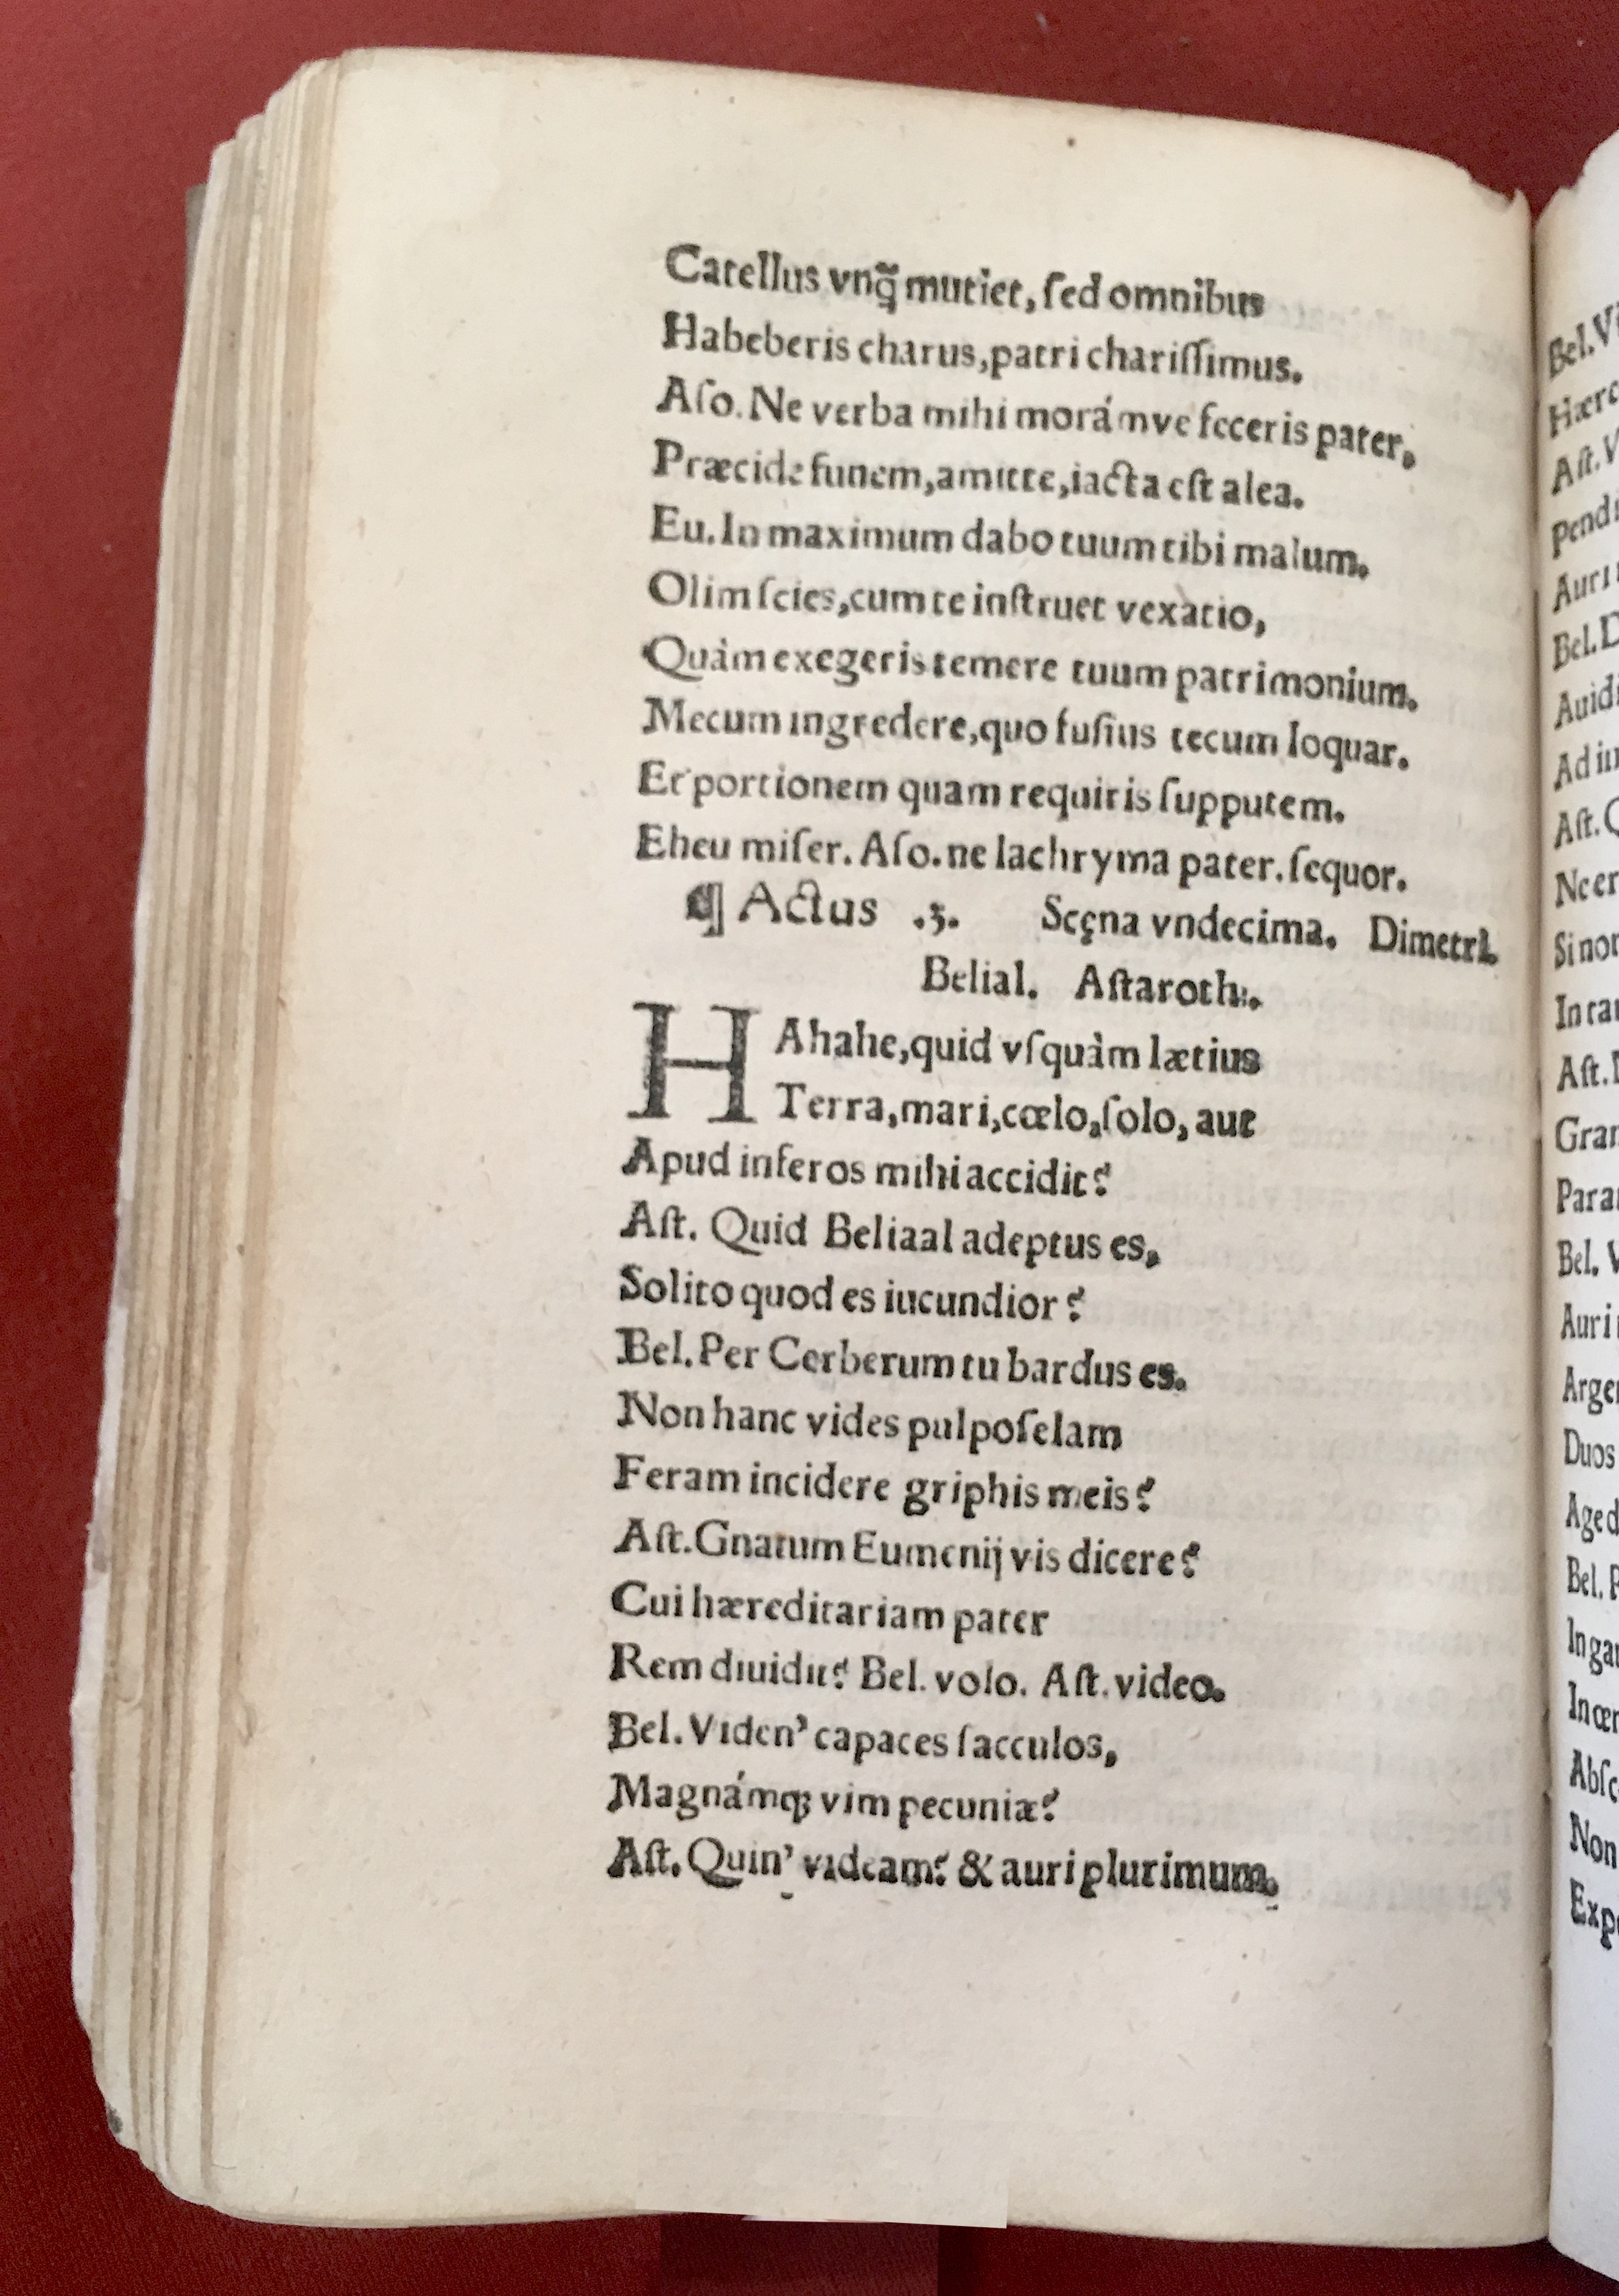 Catellus vnq̃ mutiet, ſed omnibus
Habeberis charus, patri chariſſimus.
Aſo. Ne verba mihi morámve feceris pater,
Præcide funem, amitte, iacta eſt alea.
Eu. In maximum dabo tuum tibi malum.
Olim ſcies, cum te inſtruet vexatio,
Quàm exegeris temere tuum patrimonium.
Mecum ingredere, quo fuſius tecum loquar.
Et portionem quam requiris ſupputem.
Eheu miſer. Aſo. ne lachryma pater. ſequor.
¶ Actus .3. Scęna vndecima. Dimetri.
Belial. Aſtaroth.
HAhahe, quid vſquàm lætius
Terra, mari, cœlo, ſolo, aut
Apud inferos mihi accidit?
Aſt. Quid Beliaal adeptus es,
Solito quod es iucundior?
Bel. Per Cerberum tu bardus es.
Non hanc vides pulpoſelam
Feram incidere griphis meis?
Aſt. Gnatum Eumenij vis dicere?
Cui hæreditariam pater
Rem diuidit? Bel. volo. Aſt. video.
Bel. Viden' capaces ſacculos,
Magnámq; vim pecuniæ?
Aſt. Quin' videam? & auri plurimum.
Bel.
Aſt.
Bel.
Ad
Aſt.
Si non
Aſt.
Bel.
Auri
Duos
Bel.
Non